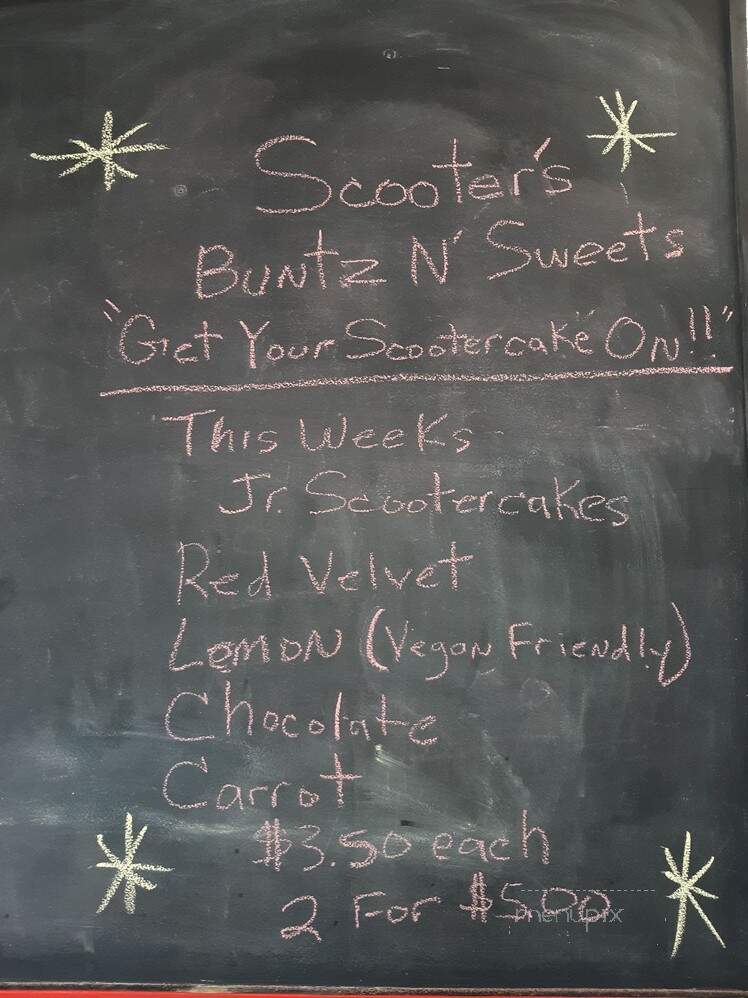 Scooter's
Buntz N' Sweets
"Get Your Scootercake" On!!"
This Weeks
Jr. Scootercakes
Red Velvet
Lemon (Vegan Friendly)
Chocolate
Carrot
$3.50 each
2 For $5.00
menupix